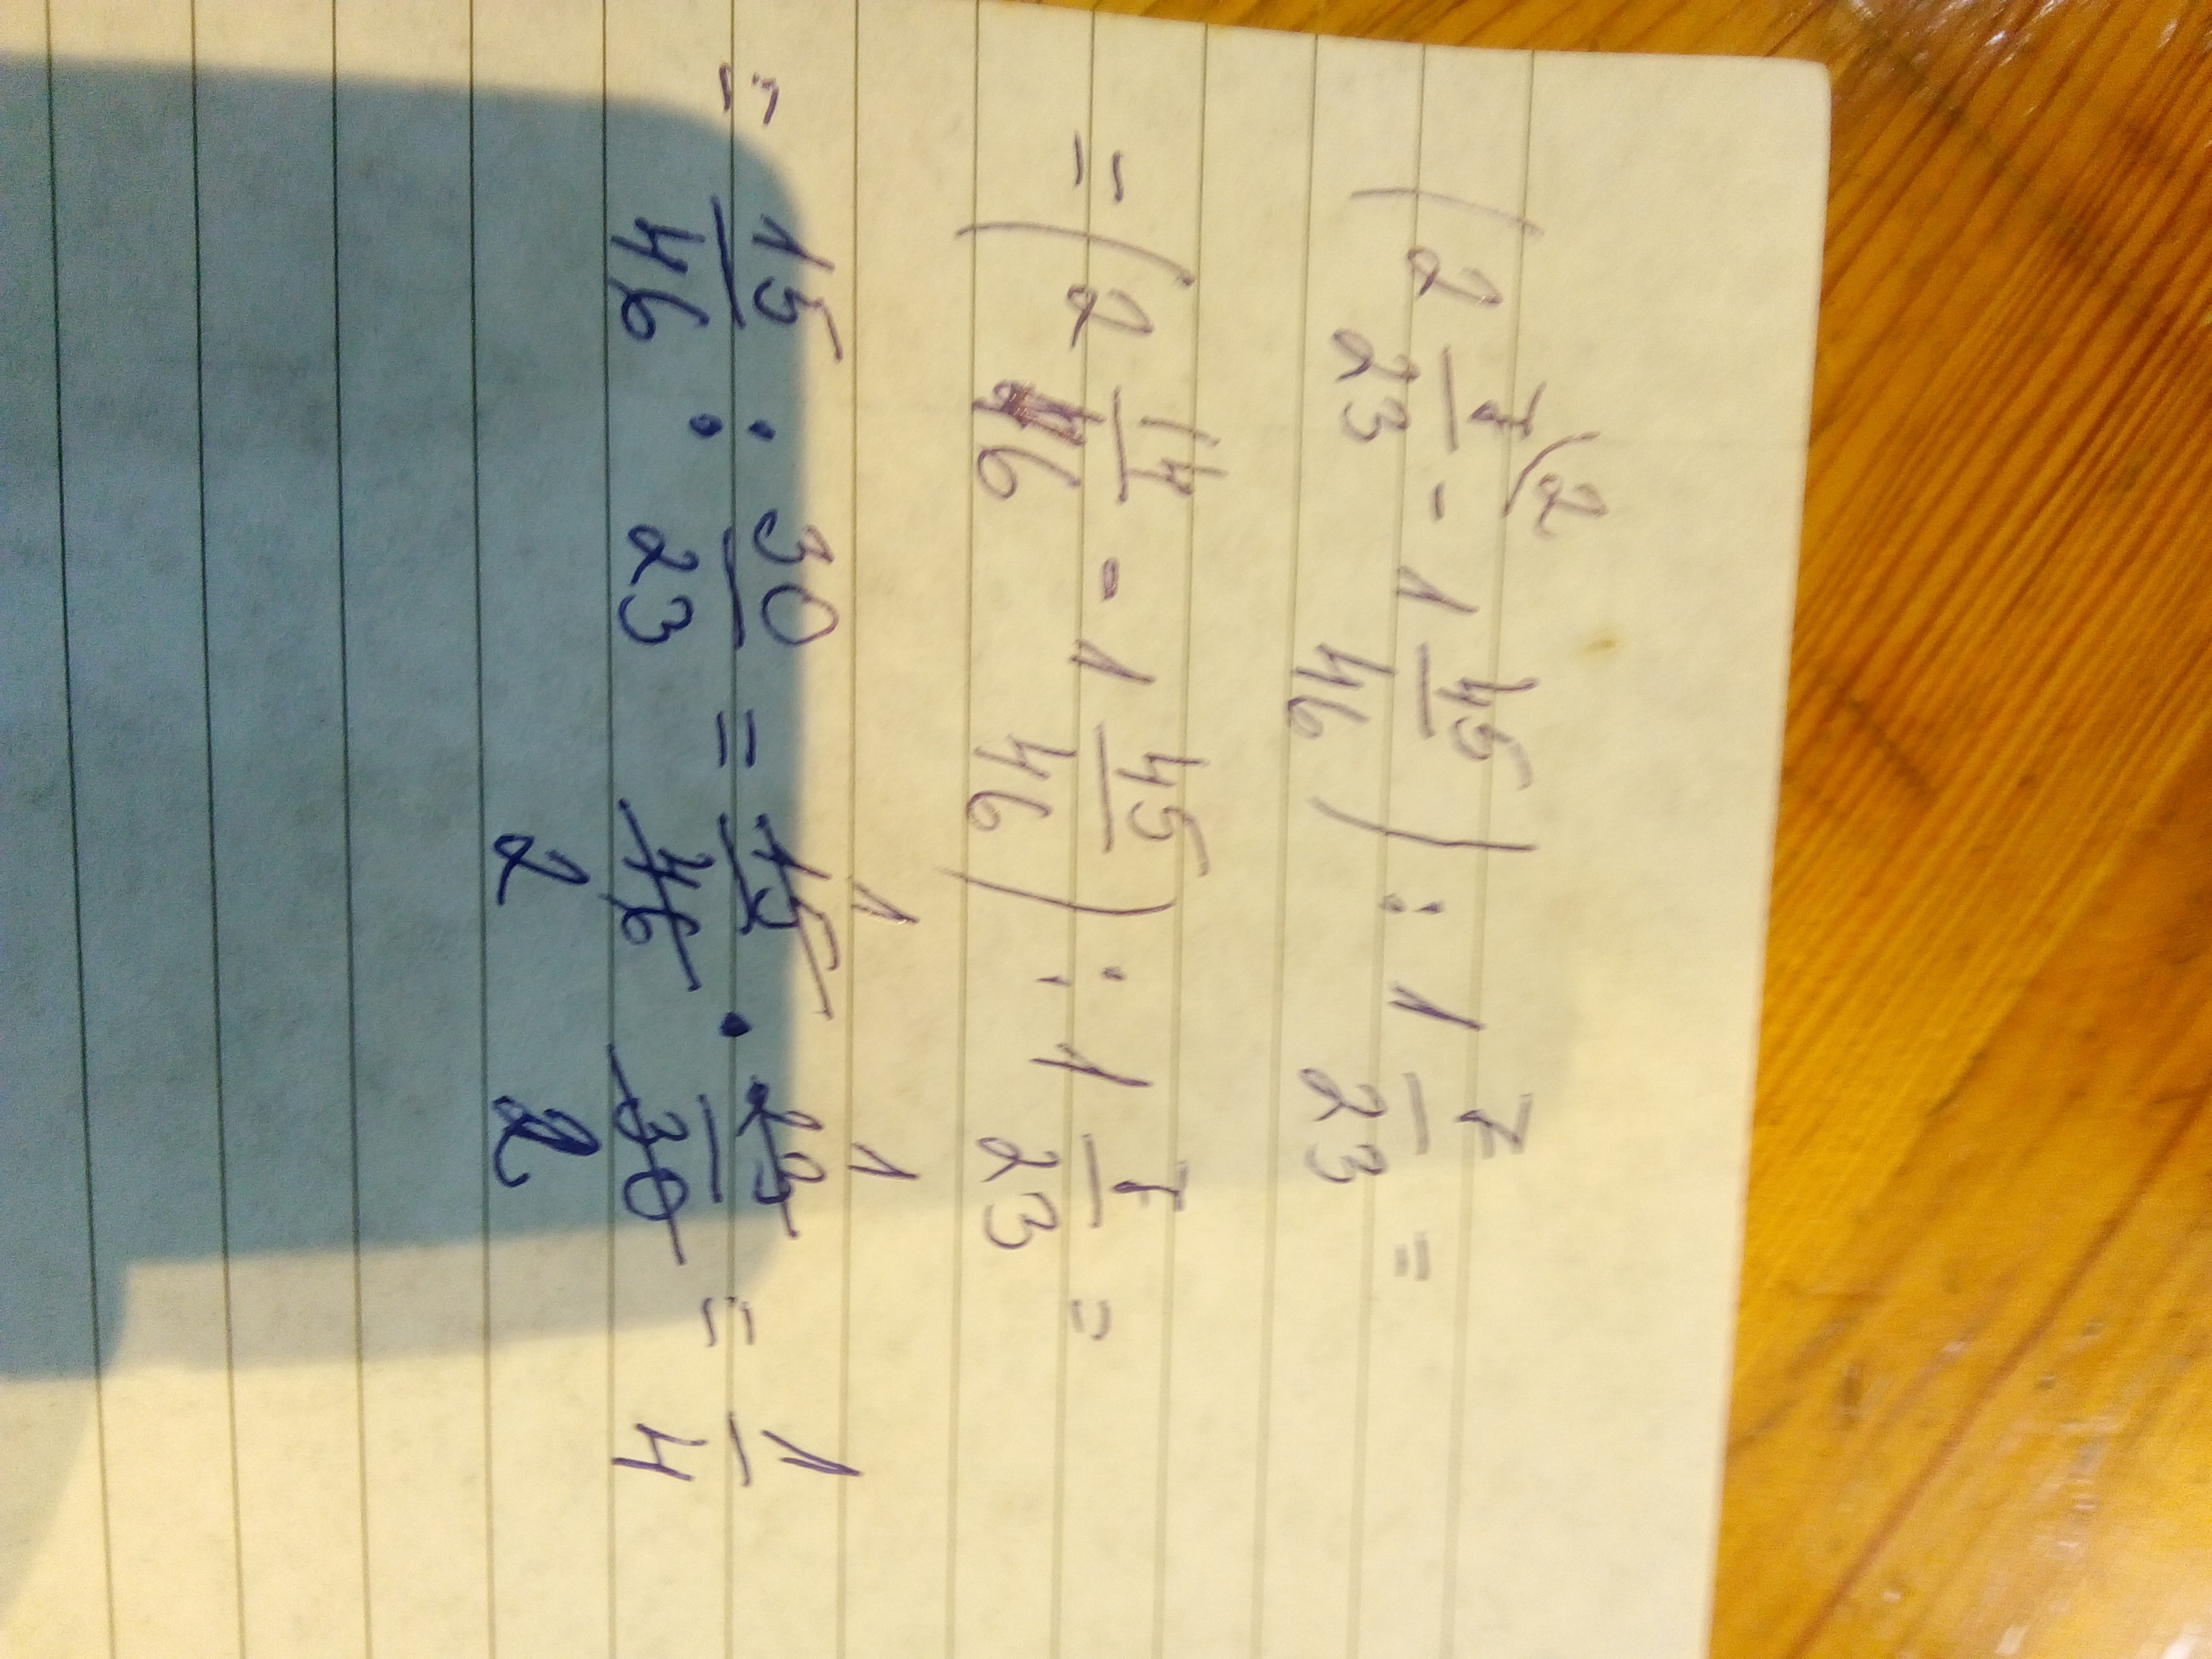 (2 7/23 (2 - 1 45/46) : 1 7/23 =
= (2 14/46 - 1 45/46) : 1 7/23 =
= 15/46 : 30/23 = 15/46 · 23/30 = 1/4
1 1
2 2